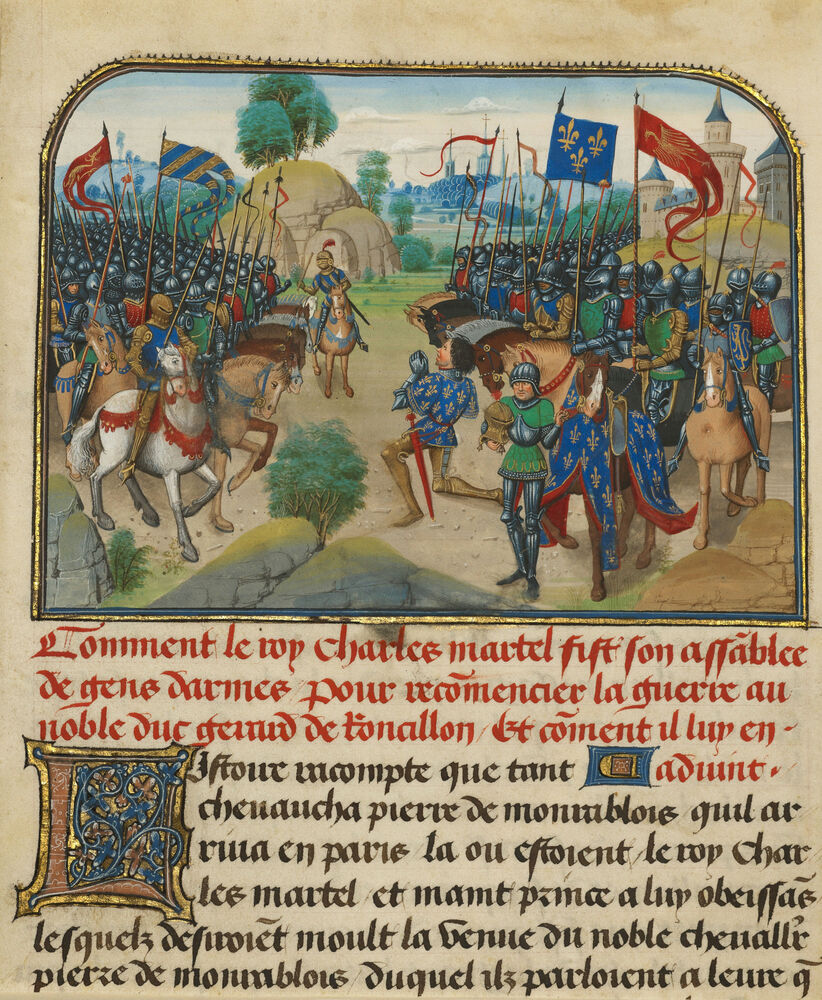 Comment le roy Charles martel fist son assãblee
de gens darmes pour recõmencier la guerre au
noble duc gerard de Roncillon / Et cõment il luy en-
aduint.
Listoire racompte que tant
cheuaucha pierre de monrablois quil ar
riua en paris / la ou estoient le roy Char
les martel et maint prince a luy obeissãs
lesquelz desiroiẽt moult la venue du noble cheuallr̃
pierre de monrablois / duquel ilz parloient a leure q̃